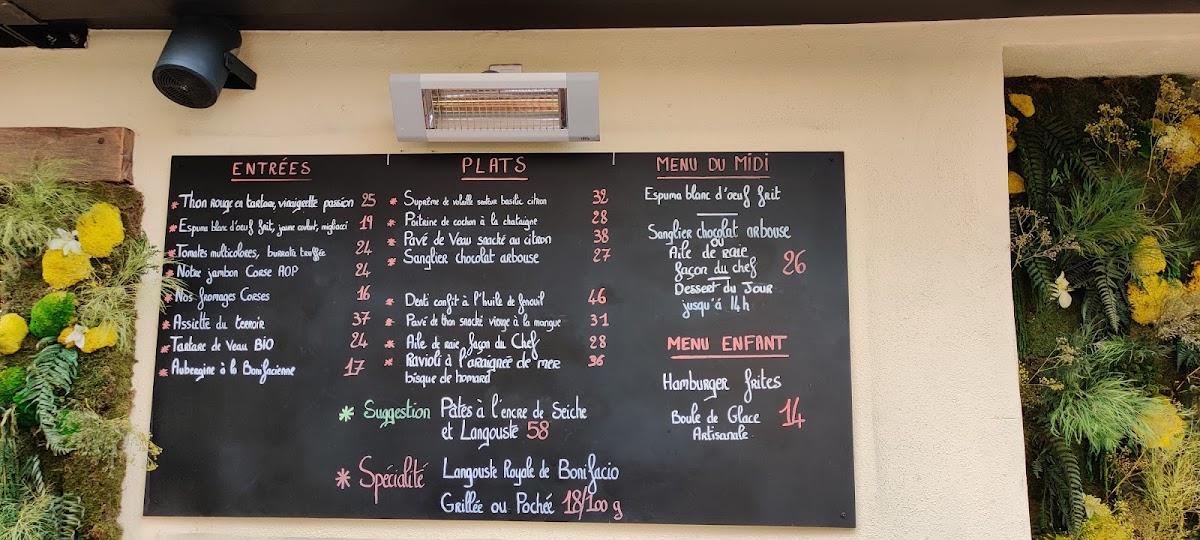 ENTRÉES
* Thon rouge en tartare, vinaigrette passion 25
* Espuma blanc d'oeuf frit, jaune coulant, migliacci 19
* Tomates multicolores, burrata truffée 24
* Notre jambon Corse AOP 24
* Nos fromages Corses 16
* Assiette du terroir 37
* Tartare de Veau BIO 24
* Aubergine à la Bonifacienne 17
PLATS
* Suprême de volaille basilic citron 32
* Poitrine de cochon à la chataigne 28
* Pavé de Veau snacké au citron 38
* Sanglier chocolat arbouse 27
* Denti confit à l'huile de fenouil 46
* Pavé de thon snacké vierge à la mangue 31
* Aile de raie, façon du Chef 28
* Ravioli à l'araignée de mer 36
bisque de homard
* Suggestion Pâtes à l'encre de Seiche
et Langouste 58
* Spécialité Langouste Royale de Bonifacio
Grillée ou Pochée 18/100 g
MENU DU MIDI
Espuma blanc d'oeuf frit
Sanglier chocolat arbouse
ou
Aile de raie
façon du chef 26
Dessert du Jour
jusqu'à 14h
MENU ENFANT
Hamburger frites
Boule de Glace 14
Artisanale